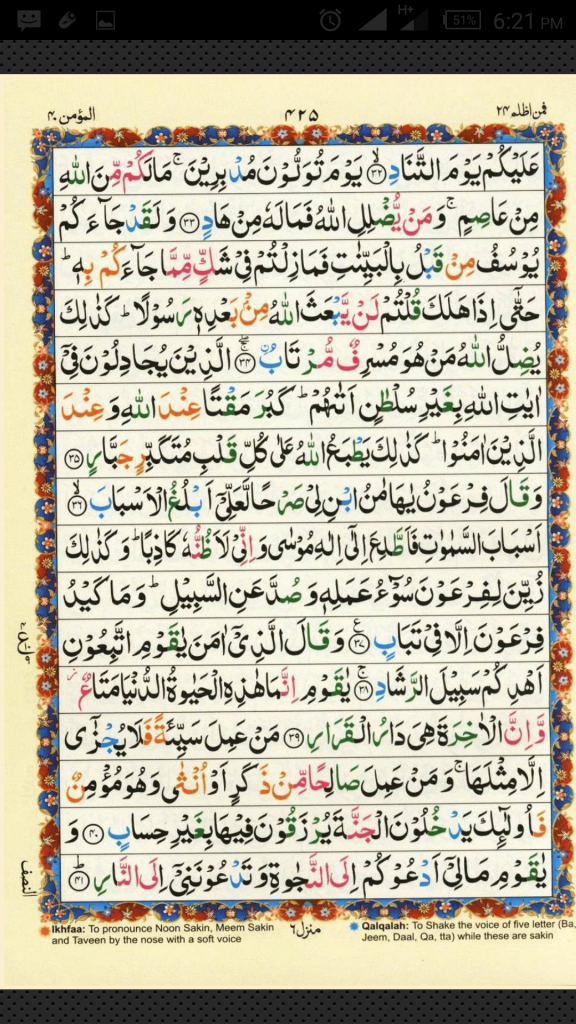 51% 6:21 PM
H+
المؤمن ٤٠ ٤٢٥ فمن اظلم ٢٤
عَلَيْكُمْ يَوْمَ التَّنَادِ ۙ﴿۳۲﴾ يَوْمَ تُوَلُّوْنَ مُدْبِرِيْنَ ۚ مَا لَكُمْ مِّنَ اللّٰهِ
مِنْ عَاصِمٍ ۚ وَ مَنْ يُّضْلِلِ اللّٰهُ فَمَا لَهٗ مِنْ هَادٍ ﴿۳۳﴾ وَ لَقَدْ جَآءَكُمْ
يُوْسُفُ مِنْ قَبْلُ بِالْبَيِّنٰتِ فَمَا زِلْتُمْ فِيْ شَكٍّ مِّمَّا جَآءَكُمْ بِهٖ ؕ
حَتّٰۤى اِذَا هَلَكَ قُلْتُمْ لَنْ يَّبْعَثَ اللّٰهُ مِنْۢ بَعْدِهٖ رَسُوْلًا ؕ كَذٰلِكَ
يُضِلُّ اللّٰهُ مَنْ هُوَ مُسْرِفٌ مُّرْتَابُ ۚ﴿۳۴﴾ الَّذِيْنَ يُجَادِلُوْنَ فِيْۤ
اٰيٰتِ اللّٰهِ بِغَيْرِ سُلْطٰنٍ اَتٰىهُمْ ؕ كَبُرَ مَقْتًا عِنْدَ اللّٰهِ وَ عِنْدَ
الَّذِيْنَ اٰمَنُوْا ؕ كَذٰلِكَ يَطْبَعُ اللّٰهُ عَلٰى كُلِّ قَلْبِ مُتَكَبِّرٍ جَبَّارٍ ﴿۳۵﴾
وَ قَالَ فِرْعَوْنُ يٰهَامٰنُ ابْنِ لِيْ صَرْحًا لَّعَلِّيْۤ اَبْلُغُ الْاَسْبَابَ ۙ﴿۳۶﴾
اَسْبَابَ السَّمٰوٰتِ فَاَطَّلِعَ اِلٰۤى اِلٰهِ مُوْسٰى وَ اِنِّيْ لَاَظُنُّهٗ كَاذِبًا ؕ وَ كَذٰلِكَ
زُيِّنَ لِفِرْعَوْنَ سُوْٓءُ عَمَلِهٖ وَ صُدَّ عَنِ السَّبِيْلِ ؕ وَ مَا كَيْدُ
فِرْعَوْنَ اِلَّا فِيْ تَبَابٍ ﴿۳۷﴾ وَ قَالَ الَّذِيْۤ اٰمَنَ يٰقَوْمِ اتَّبِعُوْنِ
اَهْدِكُمْ سَبِيْلَ الرَّشَادِ ۚ﴿۳۸﴾ يٰقَوْمِ اِنَّمَا هٰذِهِ الْحَيٰوةُ الدُّنْيَا مَتَاعٌ ؗ
وَّ اِنَّ الْاٰخِرَةَ هِيَ دَارُ الْقَرَارِ ﴿۳۹﴾ مَنْ عَمِلَ سَيِّئَةً فَلَا يُجْزٰۤى
اِلَّا مِثْلَهَا ۚ وَ مَنْ عَمِلَ صَالِحًا مِّنْ ذَكَرٍ اَوْ اُنْثٰى وَ هُوَ مُؤْمِنٌ
فَاُولٰٓئِكَ يَدْخُلُوْنَ الْجَنَّةَ يُرْزَقُوْنَ فِيْهَا بِغَيْرِ حِسَابٍ ﴿۴۰﴾ وَ
يٰقَوْمِ مَا لِيْۤ اَدْعُوْكُمْ اِلَى النَّجٰوةِ وَ تَدْعُوْنَنِيْۤ اِلَى النَّارِ ؕ﴿۴۱﴾
النصف
منزل ٦
Ikhfaa: To pronounce Noon Sakin, Meem Sakin
and Taveen by the nose with a soft voice
Qalqalah: To Shake the voice of five letter (Ba,
Jeem, Daal, Qa, tta) while these are sakin